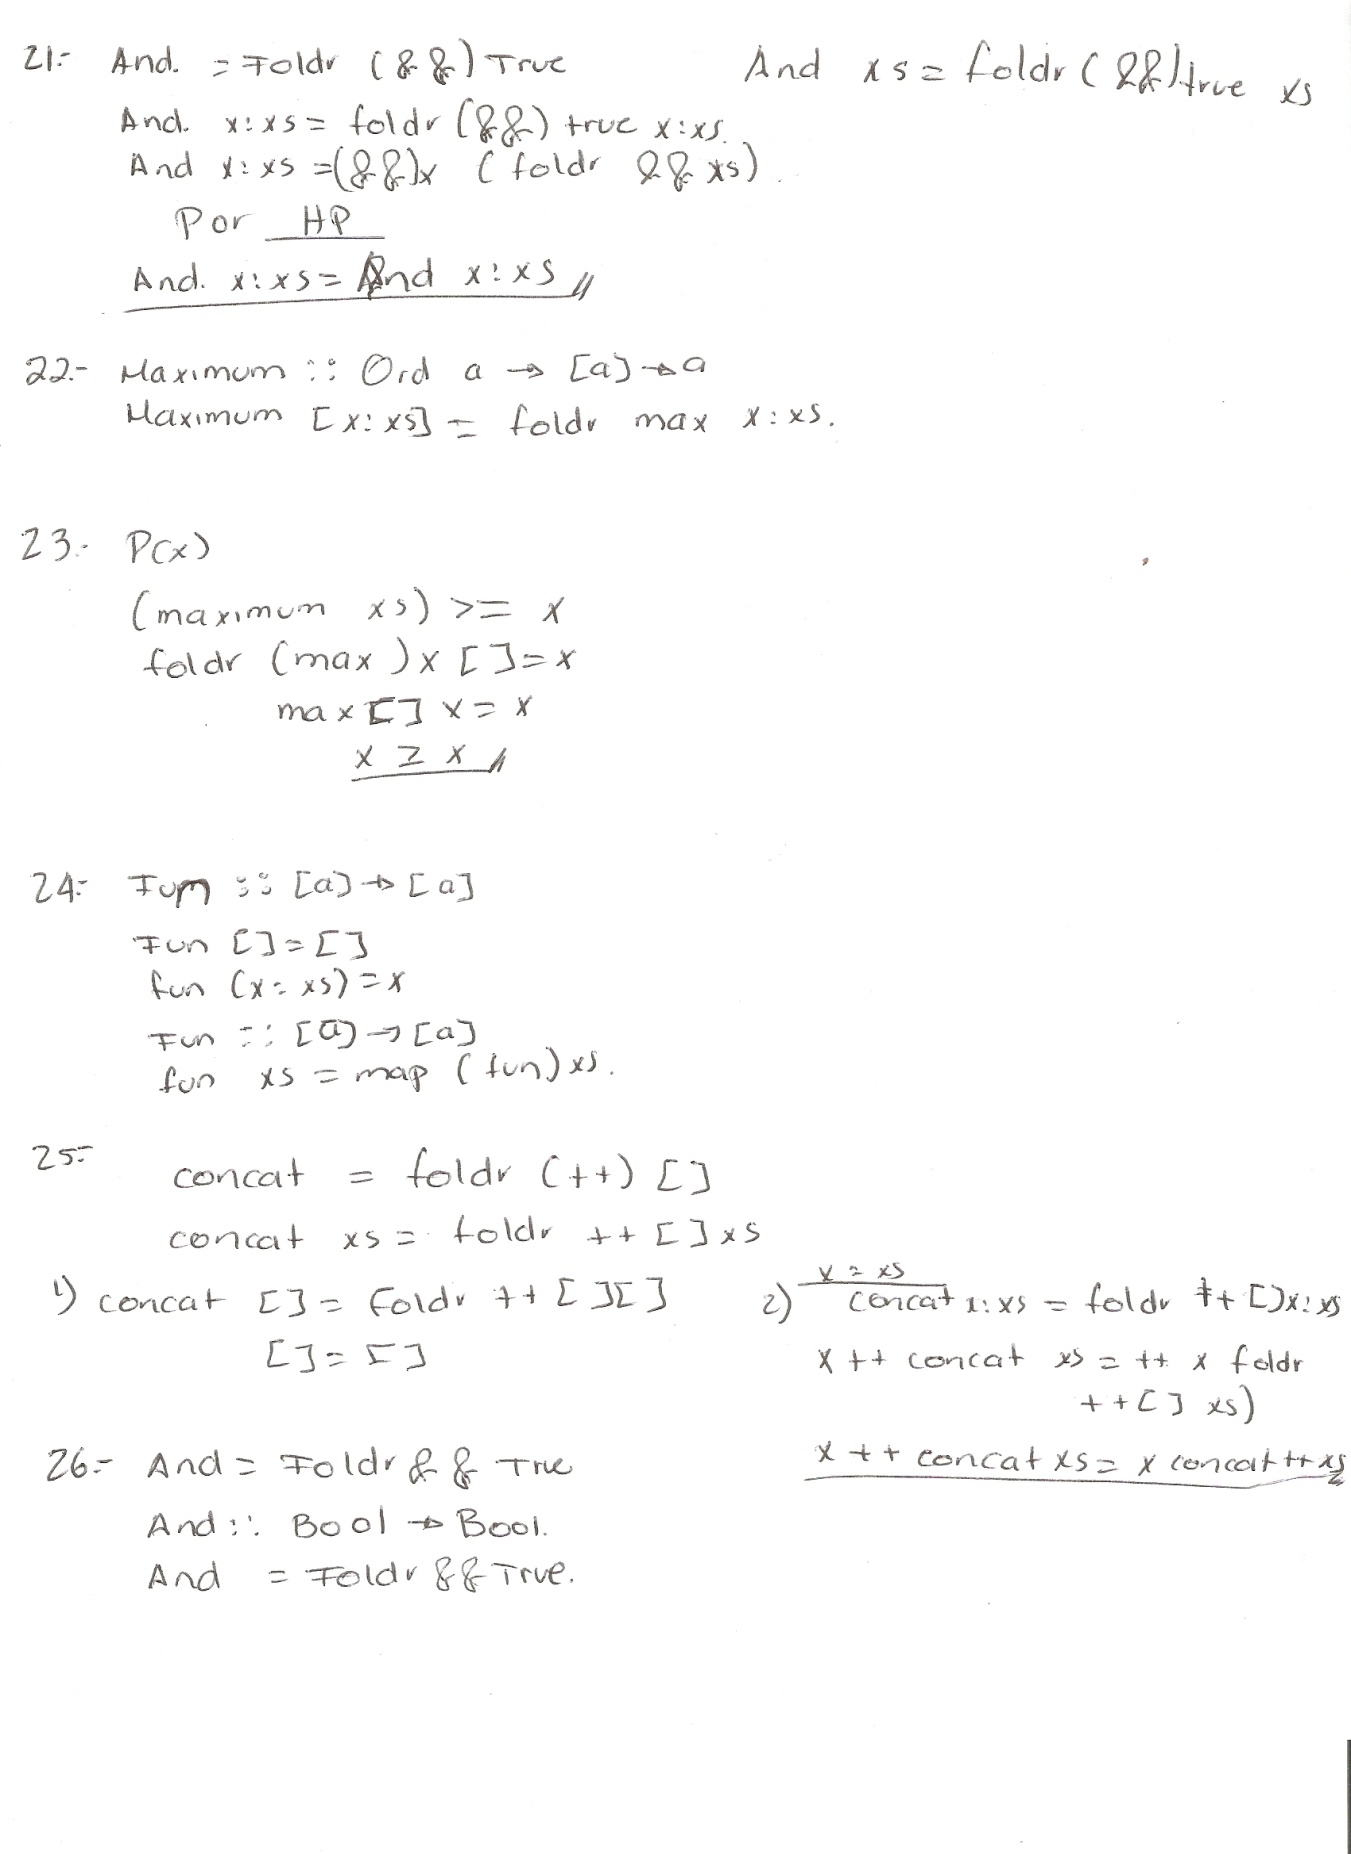 21.- And. = Foldr (&&) True
And xs = foldr (&&) true xs
And. x:xs = foldr (&&) true x:xs.
And x:xs = (&&)x (foldr && xs).
Por HP
And. x:xs = And x:xs
22.- Maximum :: Ord a → [a] → a
Maximum [x:xs] = foldr max x:xs.
23.- P(x)
(maximum xs) >= x
foldr (max) x [] = x
max [] x = x
x = x
24.- Fun :: [a] → [a]
Fun [] = []
fun (x:xs) = x
Fun :: [a] → [a]
fun xs = map (fun) xs.
25.-
concat = foldr (++) []
concat xs = foldr ++ [] xs
1) concat [] = Foldr ++ [][]
[] = []
2) x = xs
concat x:xs = foldr ++ []x:xs
x ++ concat xs = ++ x foldr
++[] xs)
x ++ concat xs = x concat ++ xs
26.- And = Foldr && True
And :: Bool → Bool.
And = Foldr && True.